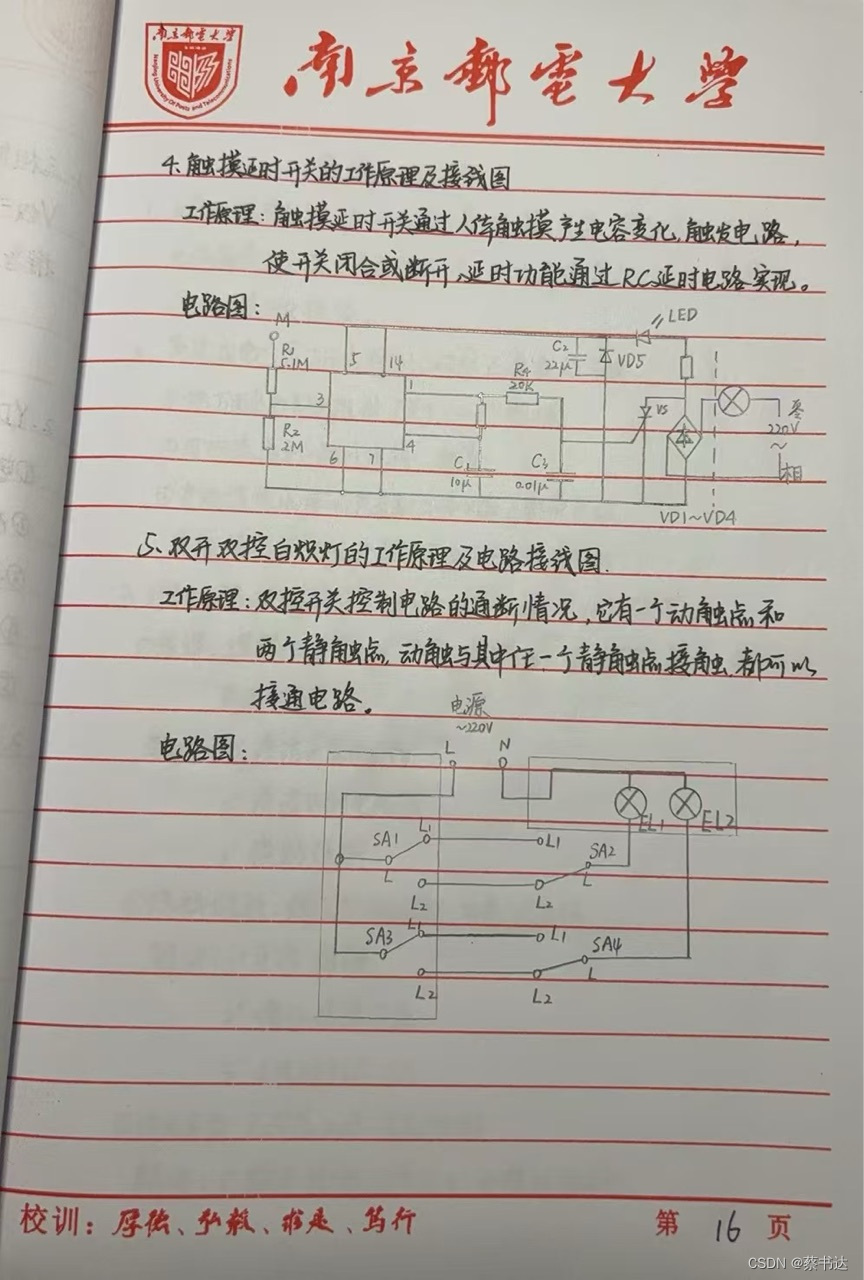 南京邮电大学
Nanjing University Of Posts and Telecommunications
南京郵電大學
4. 触摸延时开关的工作原理及接线图
工作原理：触摸延时开关通过人体触摸,产生电容变化,触发电路，
使开关闭合或断开、延时功能通过RC延时电路实现。
电路图：
M
LED
R1
5.1M
5
14
C2
22μ
VD5
R4
20K
3
1
VS
零
220V
~
R2
2M
4
6
7
C1
10μ
C3
0.01μ
相
VD1~VD4
5、双开双控白炽灯的工作原理及电路接线图.
工作原理：双控开关控制电路的通断情况，它有一个动触点和
两个静触点,动触与其中任一个静触点接触,都可以
接通电路。
电源
~220V
电路图：
L
N
EL1
EL2
SA1
L1
L1
SA2
L
L
L2
L2
SA3
L1
L1
SA4
L
L2
L2
校训：厚德、弘毅、求是、笃行
第 16 页
CSDN @蔡书达